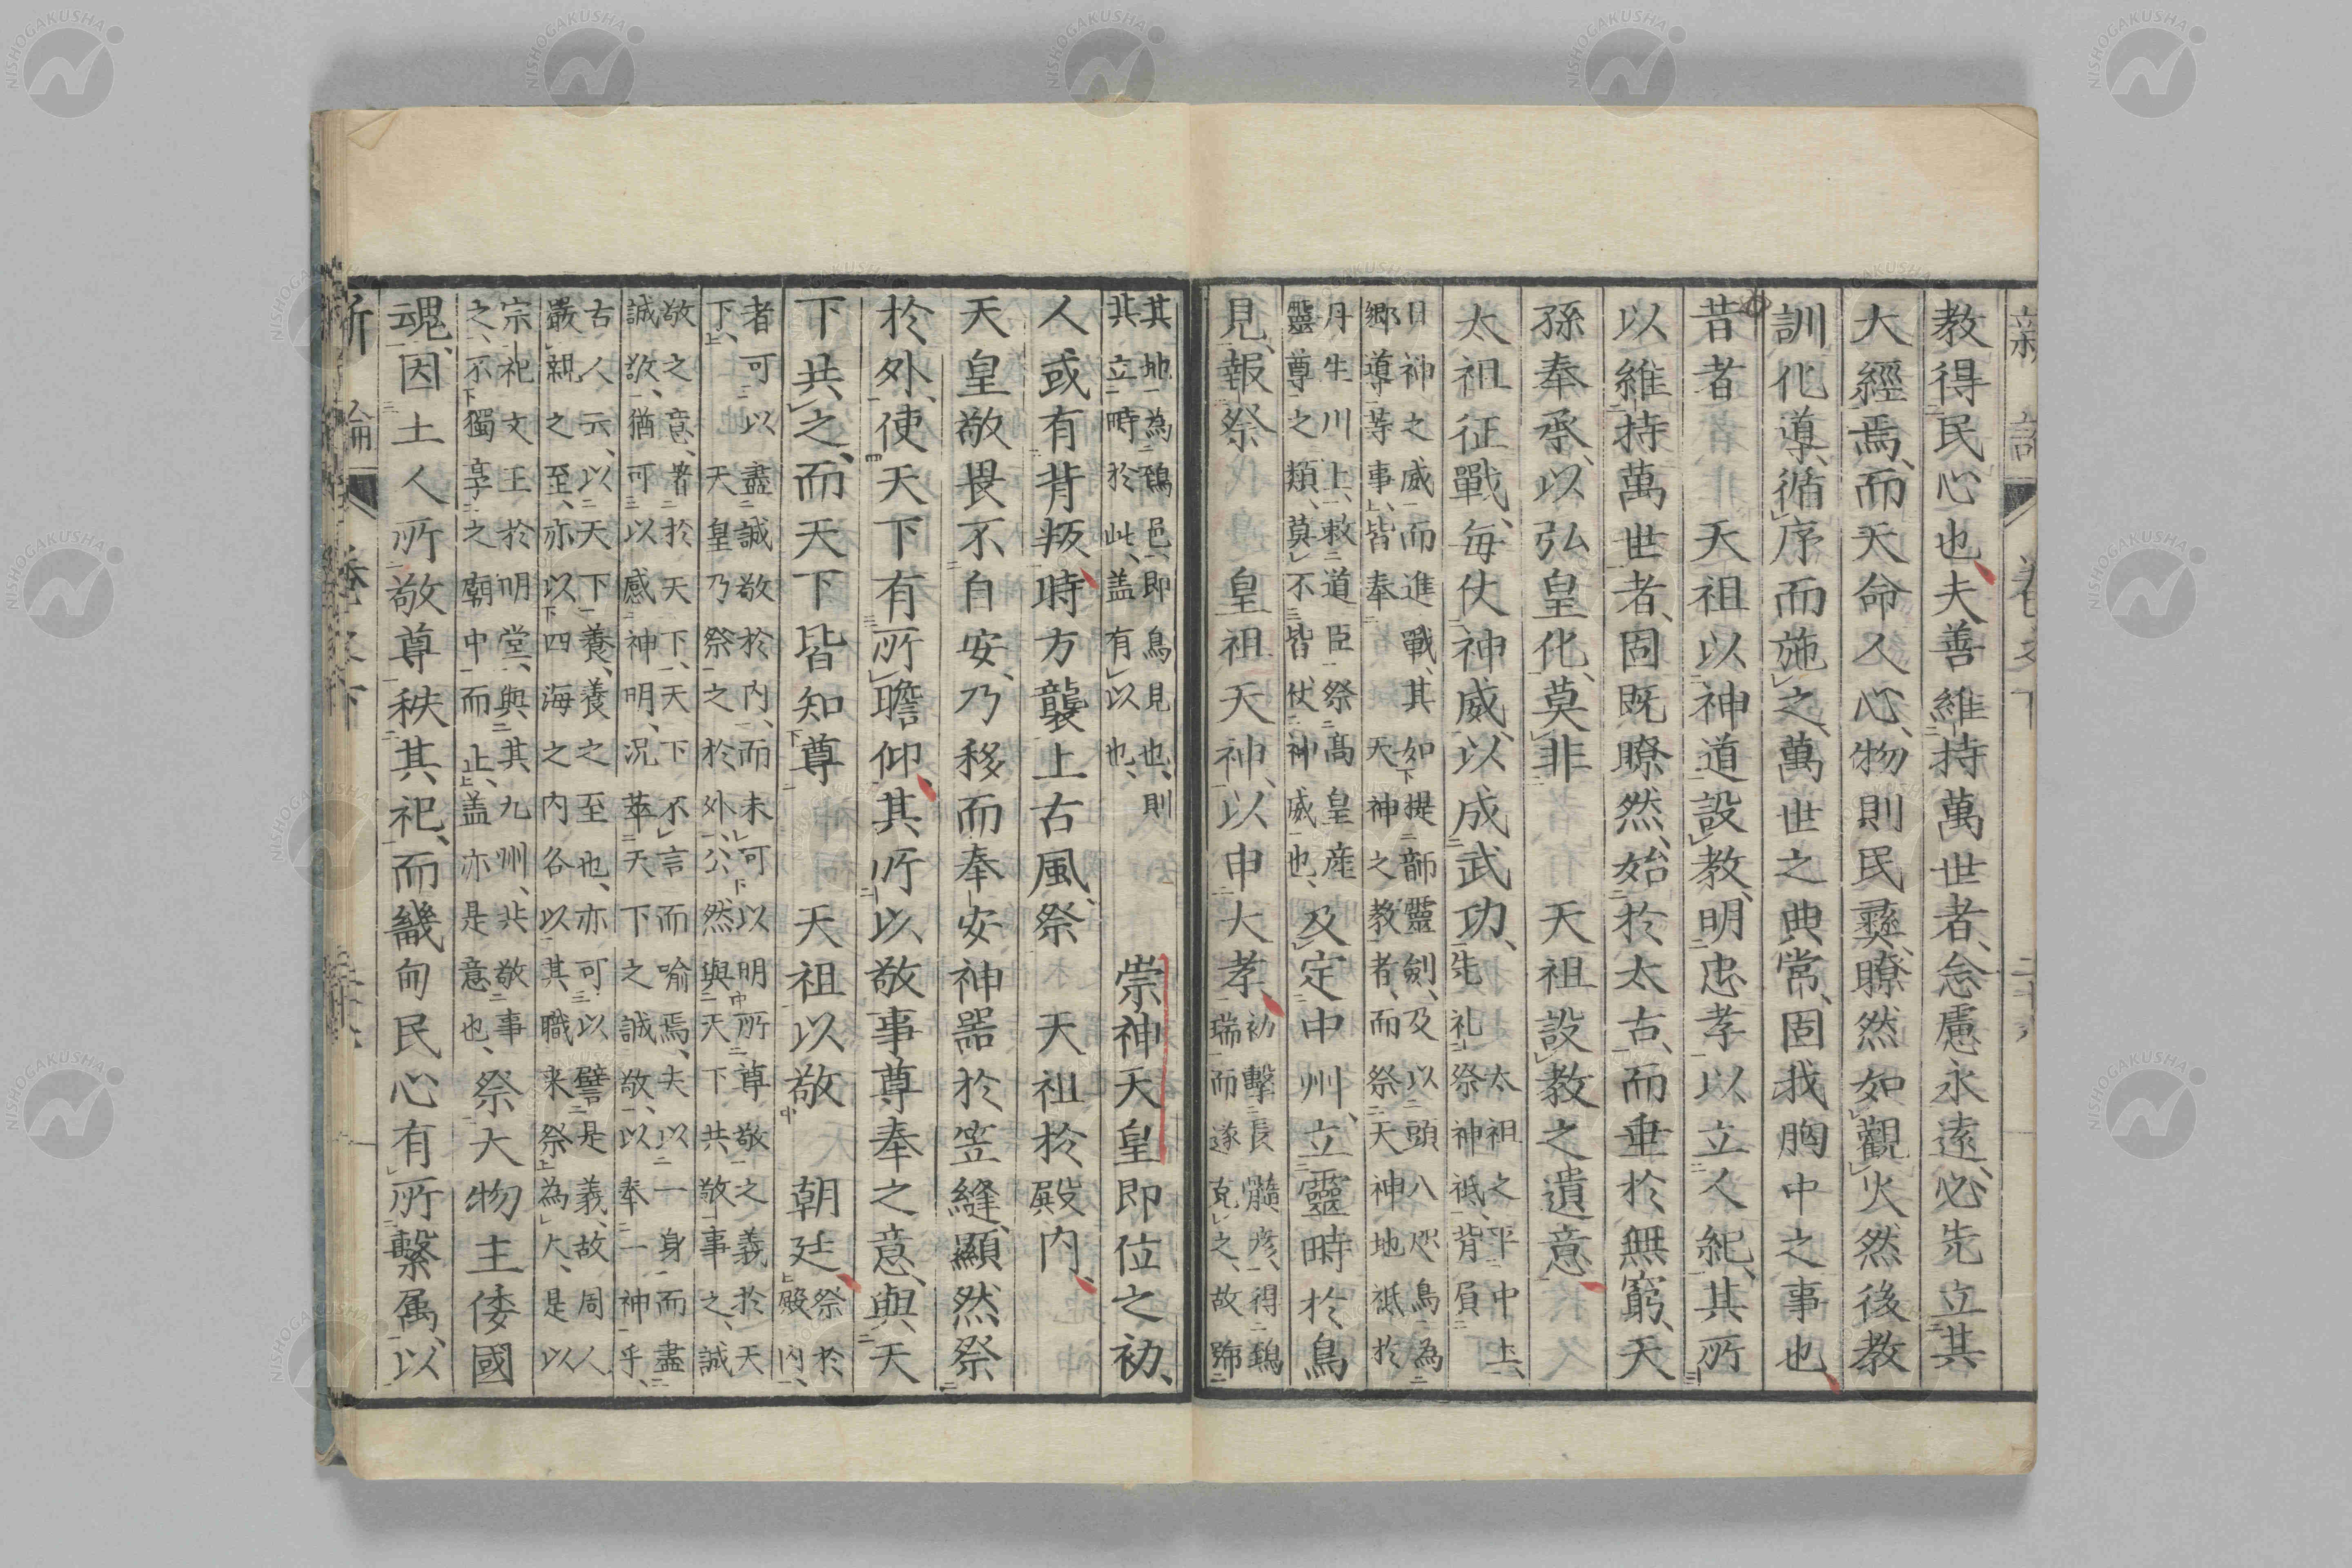 教得民心也、夫善維持萬世者、念慮永遠、必先立其
大經焉、而天命人心、物則民彝、瞭然如觀火、然後教
訓化導、循序而施之、萬世之典常、固我胸中之事也、
昔者　天祖以神道設教、明忠孝以立人紀、其所
以維持萬世者、固既瞭然、始於太古、而垂於無窮、天
孫奉承、以弘皇化、莫非　天祖設教之遺意、
太祖征戰、每仗神威、以成武功、
太祖之平中土、
先礼祭神祇、背負
日神之威而進戰、其如提韴靈劍、及以頭八咫烏為
郷導等事、皆奉　天神之教者、而祭天神地祇於
丹生川上、敕道臣祭髙皇産
靈尊之類、莫不皆仗神威也、
及定中州、立靈畤於鳥
見、報祭　皇祖天神、以申大孝、
初擊長髓彦、得鵄
瑞而遂克之、故號
其地為鵄邑、即鳥見也、則
其立畤於此、盖有以也、
崇神天皇即位之初、
人或有背叛、時方襲上古風、祭　天祖於殿内、
天皇敬畏不自安、乃移而奉安神器於笠縫、顯然祭
於外、使天下有所瞻仰、其所以敬事尊奉之意、與天
下共之、而天下皆知尊　天祖以敬　朝廷、
祭於
殿内、
者可以盡誠敬於内、而未可以明所尊敬之義於天
下、　天皇乃祭之於外、公然與天下共敬事之、誠
敬之意、著於天下、天下不言而喻焉、夫以一身而盡
誠敬、猶可以感神明、況萃天下之誠敬、以奉一神乎、
古人云、以天下養、養之至也、亦可以譬是義、故周人
嚴親之至、亦以四海之内各以其職来祭為大、是以
宗祀文王於明堂、與其九州、共敬事
之、不獨享之廟中而止、盖亦是意也、
祭大物主倭國
魂、因土人所敬尊秩其祀、而畿甸民心有所繫属、以
新　論　卷之下